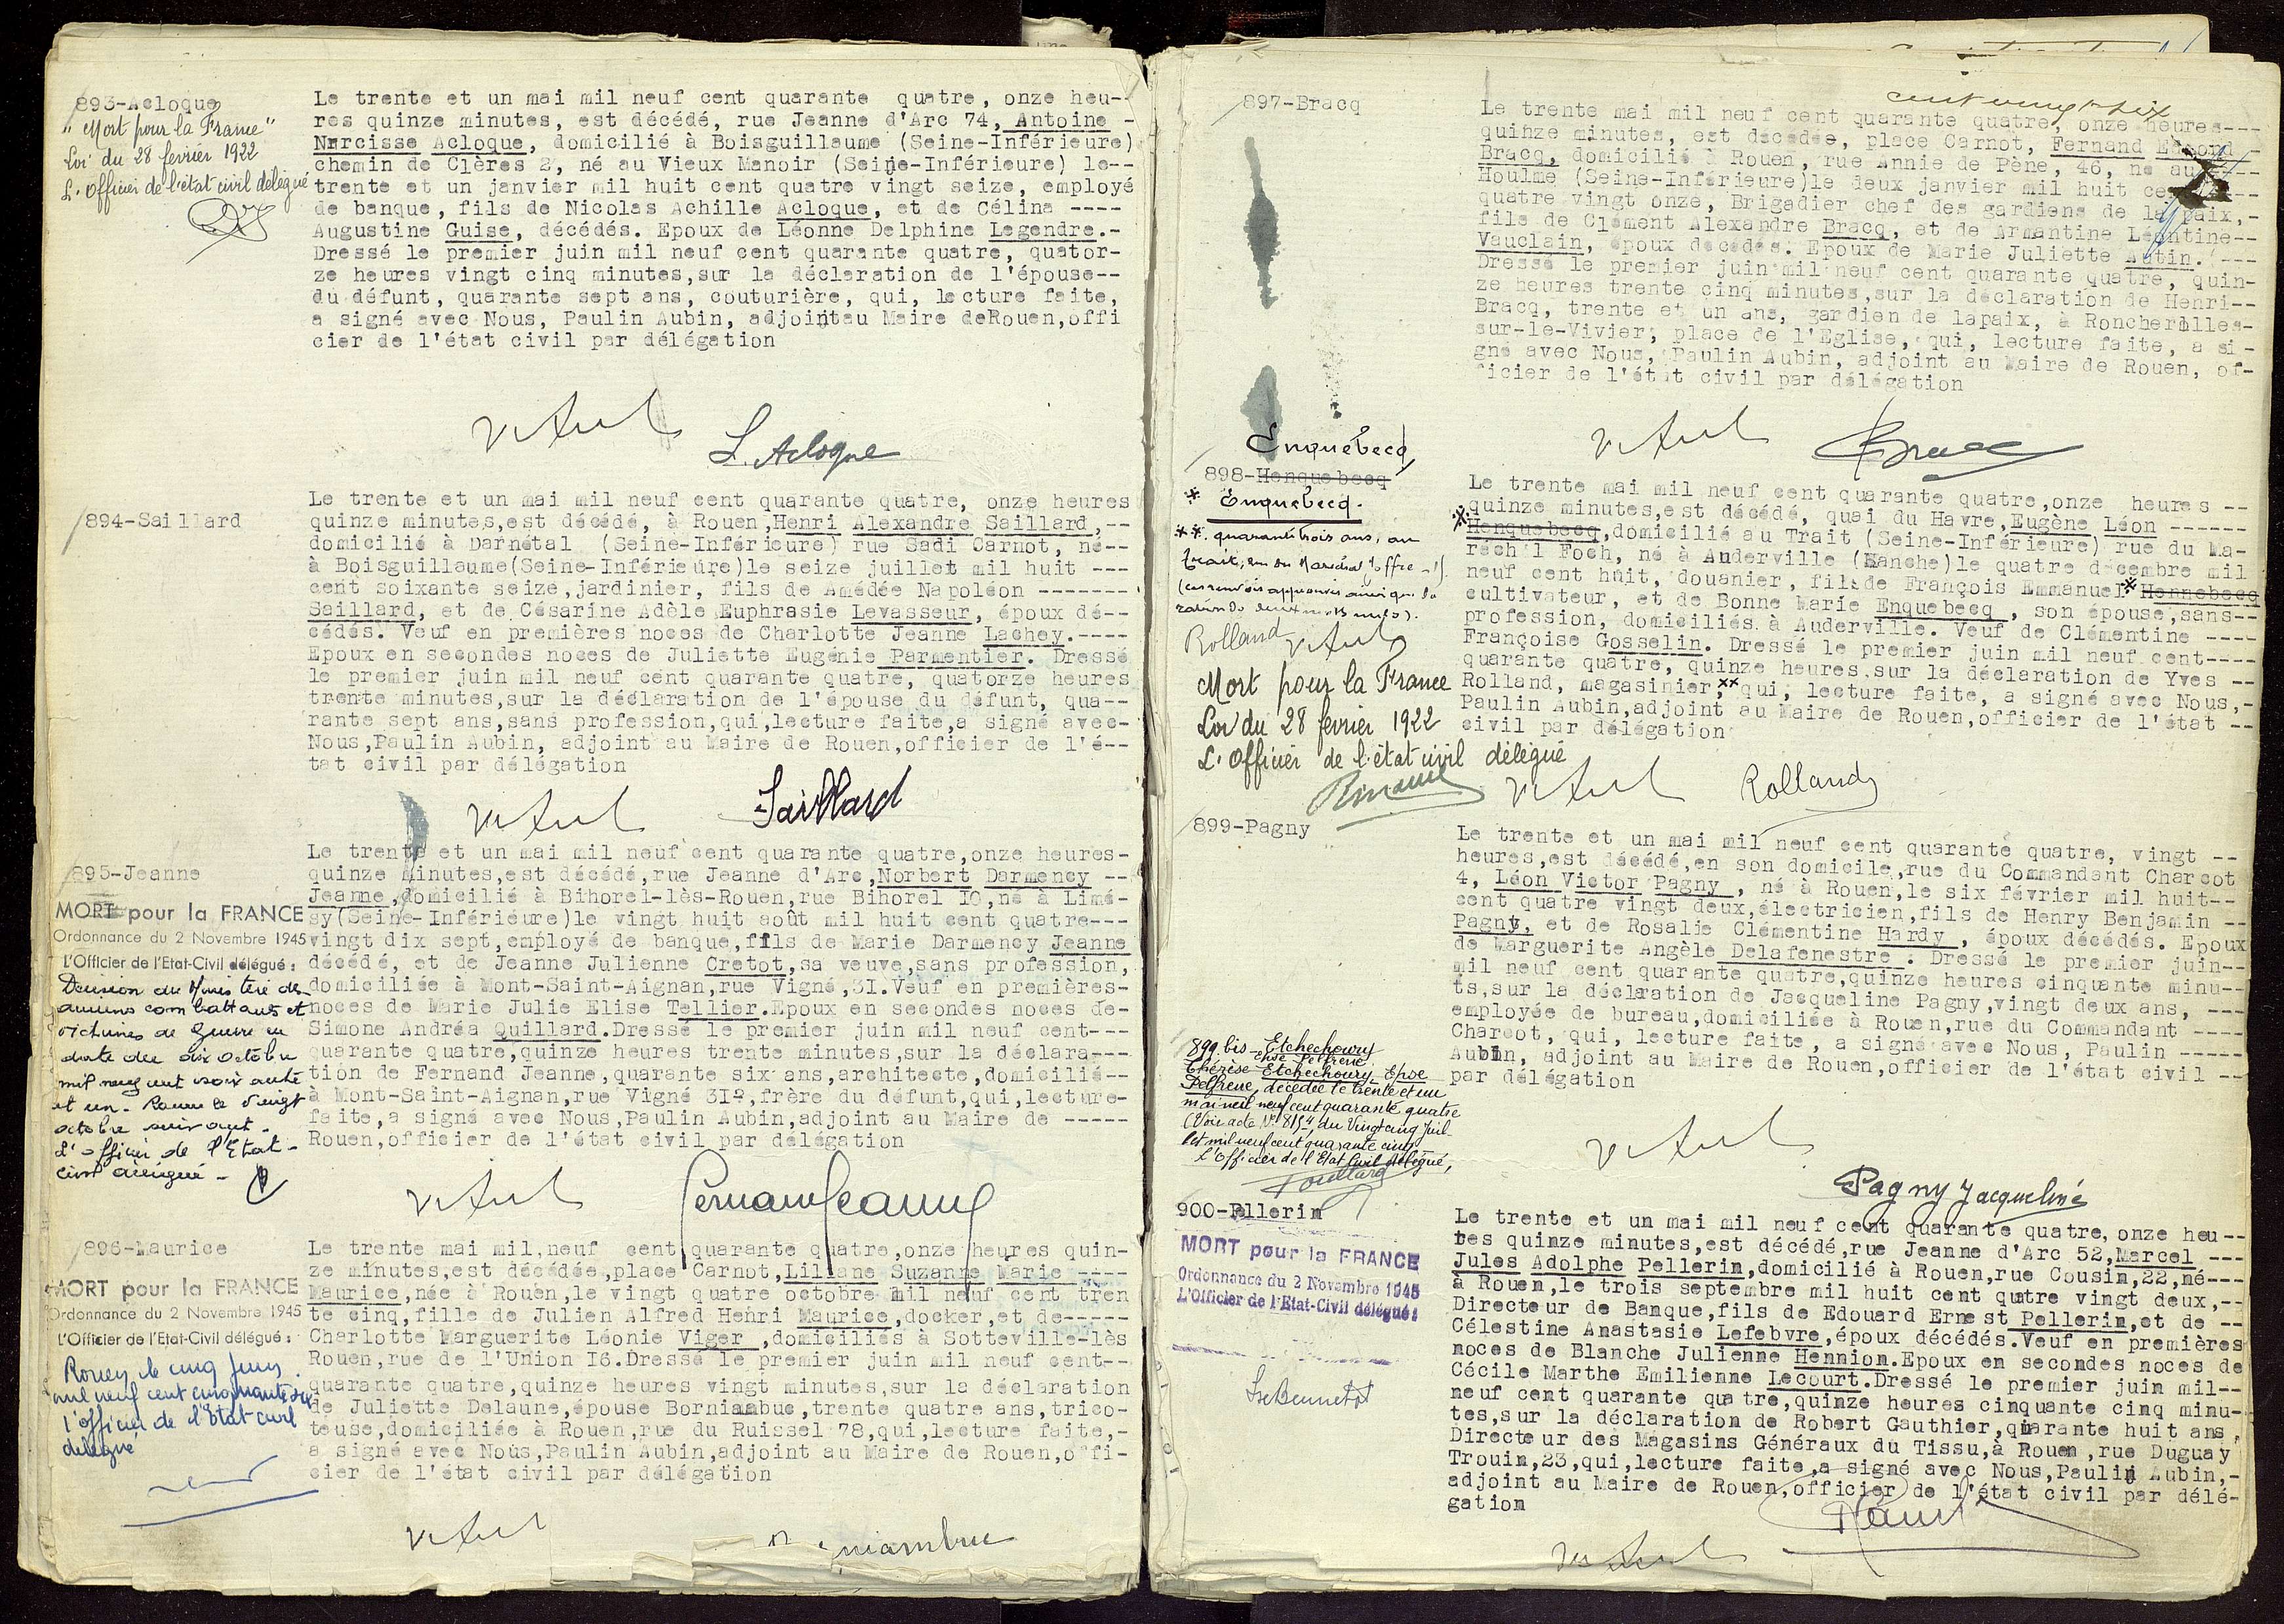 893-Acloque
"Mort pour la France"
Loi du 28 février 1922
L'Officier de l'état civil délégué
Le trente et un mai mil neuf cent quarante quatre, onze heu--
res quinze minutes, est décédé, rue Jeanne d'Arc 74, Antoine -
Narcisse Acloque, domicilié à Boisguillaume (Seine-Inférieure)
chemin de Clères 2, né au Vieux Manoir (Seine-Inférieure) le--
trente et un janvier mil huit cent quatre vingt seize, employé
de banque, fils de Nicolas Achille Acloque, et de Célina ----
Augustine Guise, décédés. Epoux de Léonne Delphine Legendre.-
Dressé le premier juin mil neuf cent quarante quatre, quator-
ze heures vingt cinq minutes,sur la déclaration de l'épouse--
du défunt, quarante sept ans, couturière, qui, lecture faite,
a signé avec Nous, Paulin Aubin, adjointau Maire deRouen,offi
cier de l'état civil par délégation
L. Acloque
894-Saillard
Le trente et un mai mil neuf cent quarante quatre, onze heures
quinze minutes,est décédé, à Rouen,Henri Alexandre Saillard,--
domicilié à Darnétal (Seine-Inférieure) rue Sadi Carnot, né--
à Boisguillaume(Seine-Inférieure)le seize juillet mil huit ---
cent soixante seize,jardinier, fils de Amédée Napoléon -------
Saillard, et de Césarine Adèle Euphrasie Levasseur, époux dé--
cédés. Veuf en premières noces de Charlotte Jeanne Lachey.----
Epoux en secondes noces de Juliette Eugénie Parmentier. Dressé
le premier juin mil neuf cent quarante quatre, quatorze heures
trente minutes,sur la déclaration de l'épouse du défunt, qua--
rante sept ans,sans profession,qui,lecture faite,a signé avec-
Nous,Paulin Aubin, adjoint au Maire de Rouen,officier de l'é--
tat civil par délégation
Saillard
895-Jeanne
MORT pour la FRANCE
Ordonnance du 2 Novembre 1945
L'Officier de l'Etat-Civil délégué :
Décision du Ministère des
anciens combattants et
victimes de Guerre en
date du dix octobre
mil neuf cent soixante
et un. Rouen le vingt
octobre suivant.
L'officier de l'Etat-
civil délégué -
Le trente et un mai mil neuf cent quarante quatre,onze heures-
quinze minutes,est décédé,rue Jeanne d'Arc,Norbert Darmency --
Jeanne,domicilié à Bihorel-lès-Rouen,rue Bihorel IO,né à Limé-
sy(Seine-Inférieure)le vingt huit août mil huit cent quatre---
vingt dix sept,employé de banque,fils de Marie Darmency Jeanne
décédé, et de Jeanne Julienne Cretot,sa veuve,sans profession,
domiciliée à Mont-Saint-Aignan,rue Vigné,3I.Veuf en premières-
noces de Marie Julie Elise Tellier.Epoux en secondes noces de-
Simone Andréa Quillard.Dressé le premier juin mil neuf cent---
quarante quatre,quinze heures trente minutes,sur la déclara---
tion de Fernand Jeanne,quarante six ans,architecte,domicilié--
à Mont-Saint-Aignan,rue Vigné 3I,frère du défunt,qui,lecture-
faite,a signé avec Nous,Paulin Aubin,adjoint au Maire de -----
Rouen,officier de l'état civil par délégation
Fernand Jeanne
896-Maurice
MORT pour la FRANCE
Ordonnance du 2 Novembre 1945
L'Officier de l'Etat-Civil délégué :
Rouen, le cinq juin
mil neuf cent cinquante six
l'officier de l'état civil
délégué
Le trente mai mil,neuf cent quarante quatre,onze heures quin-
ze minutes,est décédée,place Carnot,Liliane Suzanne Marie ----
Maurice,née à Rouen,le vingt quatre octobre mil neuf cent tren
te cinq,fille de Julien Alfred Henri Maurice,docker,et de-----
Charlotte Marguerite Léonie Viger ,domiciliés à Sotteville-lès
Rouen,rue de l'Union I6.Dressé le premier juin mil neuf cent--
quarante quatre,quinze heures vingt minutes,sur la déclaration
de Juliette Delaune,épouse Borniambuc,trente quatre ans,trico-
teuse,domiciliée à Rouen,rue du Ruissel 78,qui,lecture faite,-
a signé avec Nous,Paulin Aubin,adjoint au Maire de Rouen,offi-
cier de l'état civil par délégation
cent vingt six
897-Bracq
Le trente mai mil neuf cent quarante quatre, onze heures---
quinze minutes, est décédée, place Carnot, Fernand Edmond -
Bracq, domicilié à Rouen, rue Annie de Pène, 46, né au
Houlme (Seine-Inférieure)le deux janvier mil huit cent
quatre vingt onze, Brigadier chef des gardiens de la paix,-
fils de Clément Alexandre Bracq, et de Armantine Léontine--
Vauclain, époux décédés. Epoux de Marie Juliette Autin.----
Dressé le premier juin mil neuf cent quarante quatre, quin-
ze heures trente cinq minutes,sur la déclaration de Henri--
Bracq, trente et un ans, gardien de lapaix, à Roncherolles-
sur-le-Vivier, place de l'Eglise, qui, lecture faite, a si-
gné avec Nous, Paulin Aubin, adjoint au Maire de Rouen, of-
ficier de l'état civil par délégation
Bracq
Enquebecq
898-Henquebecq
* Enquebecq.
** quarante trois ans, au
Trait, rue du Maréchal Joffre
Rolland
Mort pour la France
Loi du 28 février 1922
L'Officier de l'état civil délégué
Le trente mai mil neuf cent quarante quatre,onze heures --
quinze minutes,est décédé, quai du Havre,Eugène Léon ------
*Henquebecq,domicilié au Trait (Seine-Inférieure) rue du Ma-
réchal Foch, né à Auderville (Manche)le quatre décembre mil
neuf cent huit, douanier, filsde François Emmanuel* Hennebecq
cultivateur, et de Bonne Marie Enquebecq , son épouse,sans--
profession, domiciliés à Auderville. Veuf de Clémentine ----
Françoise Gosselin. Dressé le premier juin mil neuf cent----
quarante quatre, quinze heures,sur la déclaration de Yves --
Rolland, magasinier,** qui, lecture faite, a signé avec Nous,-
Paulin Aubin,adjoint au Maire de Rouen,officier de l'état --
civil par délégation
Rolland
899-Pagny
Le trente et un mai mil neuf cent quarante quatre, vingt --
heures,est décédé,en son domicile,rue du Commandant Charcot
4, Léon Victor Pagny , né à Rouen,le six février mil huit--
cent quatre vingt deux,électricien,fils de Henry Benjamin --
Pagny, et de Rosalie Clémentine Hardy , époux décédés. Epoux
de Marguerite Angèle Delafenestre . Dressé le premier juin--
mil neuf cent quarante quatre,quinze heures cinquante minu--
ts,sur la déclaration de Jacqueline Pagny,vingt deux ans, ---
employée de bureau,domiciliée à Rouen,rue du Commandant ----
Charcot, qui, lecture faite, a signé avec Nous, Paulin -----
Aubin, adjoint au Maire de Rouen,officier de l'état civil --
par délégation
Pagny Jacqueline
899 bis Etchechoury
Epse Pelfrène
Thérèse Etchechoury Epse
Pelfrene, décédée le trente et un
mai mil neuf cent quarante quatre
(Voir acte N° 815 du Vingt cinq Juil-
let mil neuf cent quarante cinq
L'Officier de l'Etat Civil délégué,
900-Pellerin
MORT pour la FRANCE
Ordonnance du 2 Novembre 1945
L'Officier de l'Etat-Civil délégué :
Le trente et un mai mil neuf cent quarante quatre, onze heu--
res quinze minutes,est décédé,rue Jeanne d'Arc 52,Marcel ---
Jules Adolphe Pellerin,domicilié à Rouen,rue Cousin,22,né---
à Rouen,le trois septembre mil huit cent quatre vingt deux,--
Directeur de Banque,fils de Edouard Ernest Pellerin,et de --
Célestine Anastasie Lefebvre,époux décédés.Veuf en premières
noces de Blanche Julienne Hennion.Epoux en secondes noces de
Cécile Marthe Emilienne Lecourt.Dressé le premier juin mil--
neuf cent quarante quatre,quinze heures cinquante cinq minu-
tes,sur la déclaration de Robert Gauthier,quarante huit ans,
Directeur des Magasins Généraux du Tissu,à Rouen,rue Duguay
Trouin,23,qui,lecture faite,a signé avec Nous,Paulin Aubin,-
adjoint au Maire de Rouen,officier de l'état civil par délé-
gation